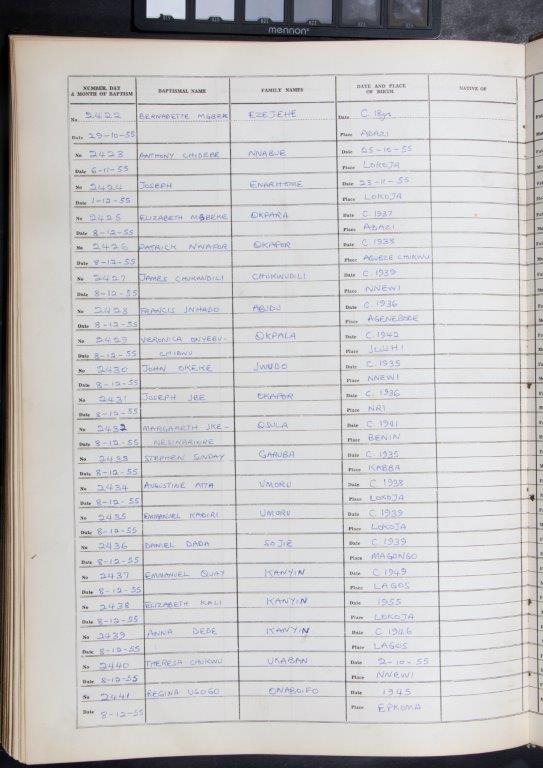 mennon
NUMBER, DAY & MONTH OF BAPTISM BAPTISMAL NAME FAMILY NAMES DATE AND PLACE OF BIRTH NATIVE OF
No 2422 BERNADETTE MGBEK EZEJEHE Date C. 18yrs
Date 29-10-55 Place ADAZI
No 2423 ANTHONY CHIDEBE NNABUE Date 25-10-55
Date 6-11-55 Place LOKOJA
No 2424 JOSEPH ENARHOME Date 23-11-55
Date 1-12-55 Place LOKOJA
No 2425 ELIZABETH MGBEKE OKPARA Date C. 1937
Date 8-12-55 Place ADAZI
No 2426 PATRICK NWAFOR OKAFOR Date C. 1938
Date 8-12-55 Place AGUEZE CHUKWU
No 2427 JAMES CHUKWUDILI CHUKWUDILI Date C. 1939
Date 8-12-55 Place NNEWI
No 2428 FRANCIS INHADO ABUDU Date C. 1936
Date 8-12-55 Place AGENEBODE
No 2429 VERONICA ONYEBU- OKPALA Date C. 1942
Date 8-12-55 CHIDWU Place
No 2430 JOHN OKEKE IWUDO Date C. 1935
Date 8-12-55 Place NNEWI
No 2431 JOSEPH IBE OKAFOR Date C. 1936
Date 8-12-55 Place NRI
No 2432 MARGARETH IKE- OSULA Date C. 1941
Date 8-12-55 NESINABIERE Place BENIN
No 2433 STEPHEN SUNDAY GARUBA Date C. 1935
Date 8-12-55 Place KABBA
No 2434 AUGUSTINE ATTA UMORU Date C 1938
Date 8-12-55 Place LOKOJA
No 2435 EMMANUEL KADIRI UMORU Date C. 1939
Date 8-12-55 Place LOKOJA
No 2436 DANIEL DADA SOJIE Date C 1939
Date 8-12-55 Place MAGONGO
No 2437 EMMANUEL QUAY KANYIN Date C 1949
Date 8-12-55 Place LAGOS
No 2438 ELIZABETH KALI KANYIN Date 1955
Date 8-12-55 Place LOKOJA
No 2439 ANNA DEDE KANYIN Date C 1946
Date 8-12-55 Place LAGOS
No 2440 THERESA CHUKWU UKABAN Date 2-10-55
Date 8-12-55 Place NNEWI
No 2441 REGINA UGOGO ONABOIFO Date 1945
Date 8-12-55 Place EPKOMA